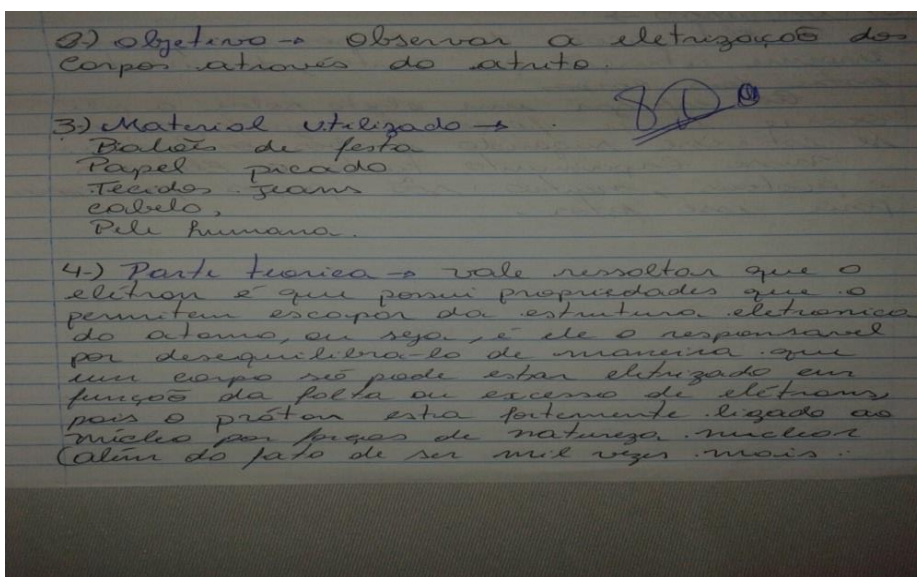 2-) objetivo → Observar a eletrização dos
Corpos através do atrito.
8D
3-) Material utilizado →
Balões de festa
Papel picado
Tecidos Jeans
cabelo,
Pele humana.
4-) Parte teorica → vale ressaltar que o
elétron é que possui propriedades que o
permitem escapar da estrutura eletronica
do atomo, ou seja, é ele o responsavel
por desequilibra-lo de maneira que
um corpo só pode estar eletrizado em
função da falta ou excesso de elétrons,
pois o próton esta fortemente ligado ao
núcleo por forças de natureza nuclear
(além do fato de ser mil vezes mais.